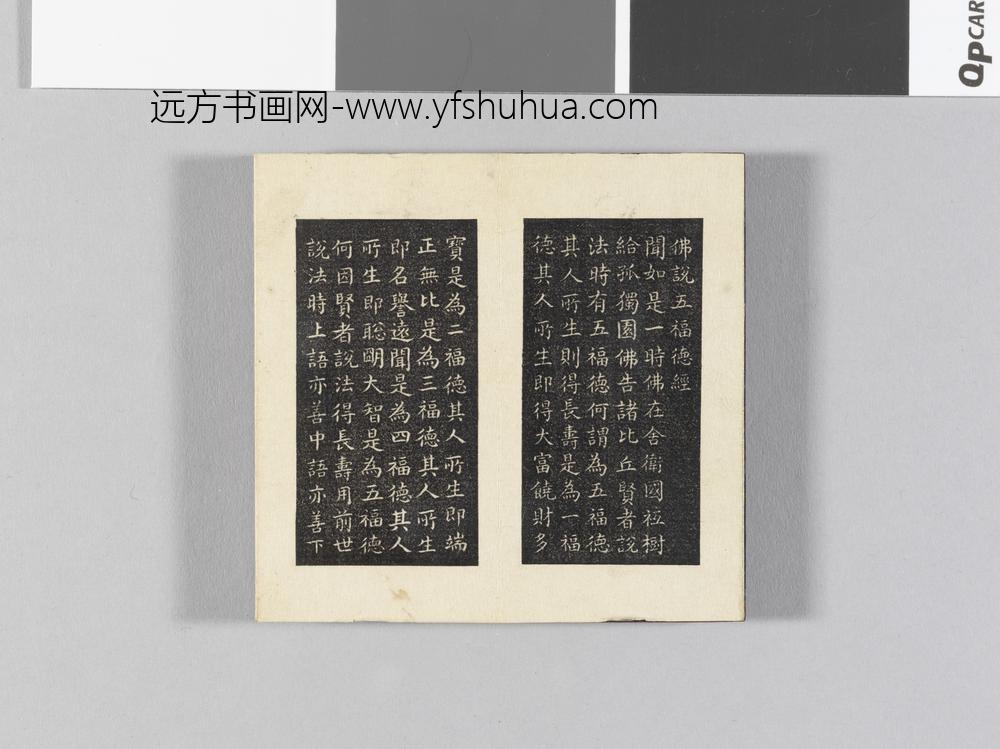 QPCARD
远方书画网-www.yfshuhua.com
佛說五福德經
聞如是一時佛在舍衛國祇樹
給孤獨園佛告諸比丘賢者說
法時有五福德何謂為五福德
其人所生則得長壽是為一福
德其人所生即得大富饒財多
寶是為二福德其人所生即端
正無比是為三福德其人所生
即名譽遠聞是為四福德其人
所生即聰明大智是為五福德
何因賢者說法得長壽用前世
說法時上語亦善中語亦善下